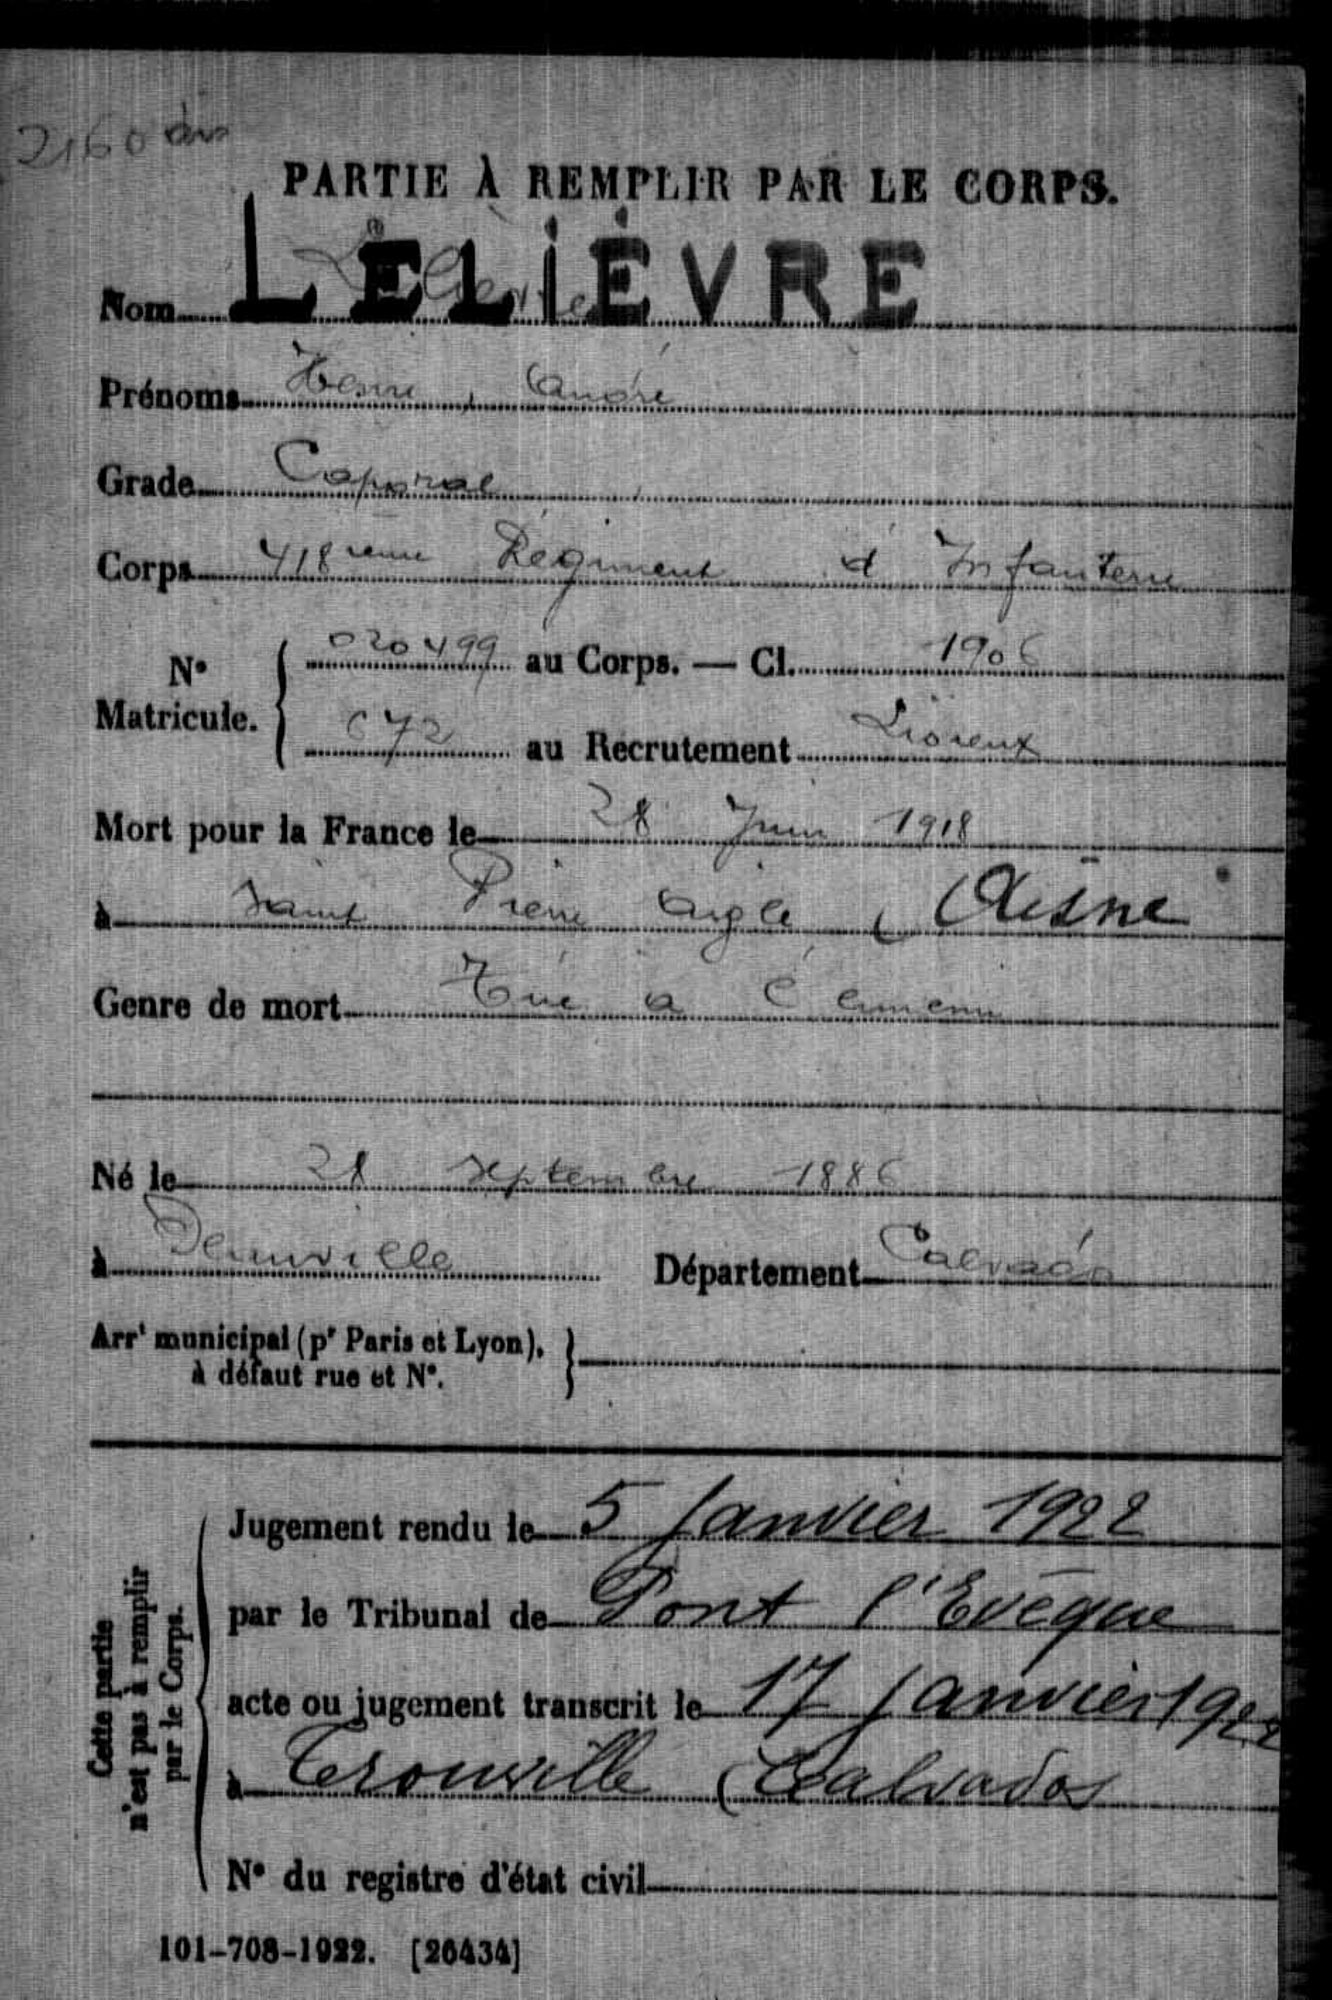 2160
PARTIE À REMPLIR PAR LE CORPS.
Nom LELIÈVRE
Prénoms Henri, André
Grade Caporal
Corps 418ème Régiment d'Infanterie
N° Matricule. { 020499 au Corps. — Cl. 1906
672 au Recrutement Lisieux
Mort pour la France le 28 Juin 1918
à Saint Pierre Aigle (Aisne
Genre de mort Tué à l'ennemi
Né le 28 septembre 1886
à Deauville Département Calvados
Arrt municipal (pr Paris et Lyon), à défaut rue et N°. }
Cette partie n'est pas à remplir par le Corps.
Jugement rendu le 5 Janvier 1922
par le Tribunal de Pont l'Evêque
acte ou jugement transcrit le 17 Janvier 1922
à Trouville (Calvados
N° du registre d'état civil
101-708-1922. [26434]